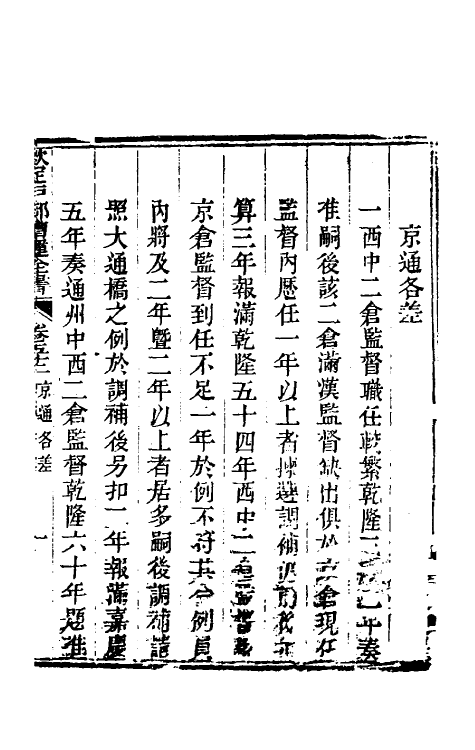 京通各差
一西中二倉監督職任殷繁乾隆三十年奏
准嗣後該二倉滿漢監督缺出俱於京倉現任
監督內歷任一年以上者揀選調補
算三年報滿乾隆五十四年西中二倉監督
京倉監督到任不足一年於例不符其合例員
內將及二年暨二年以上者居多嗣後調補請
照大通橋之例於調補後另扣二年報滿嘉慶
五年奏通州中西二倉監督乾隆六十年題准
欽定戶部漕運全書 卷五十二 京通各差 一